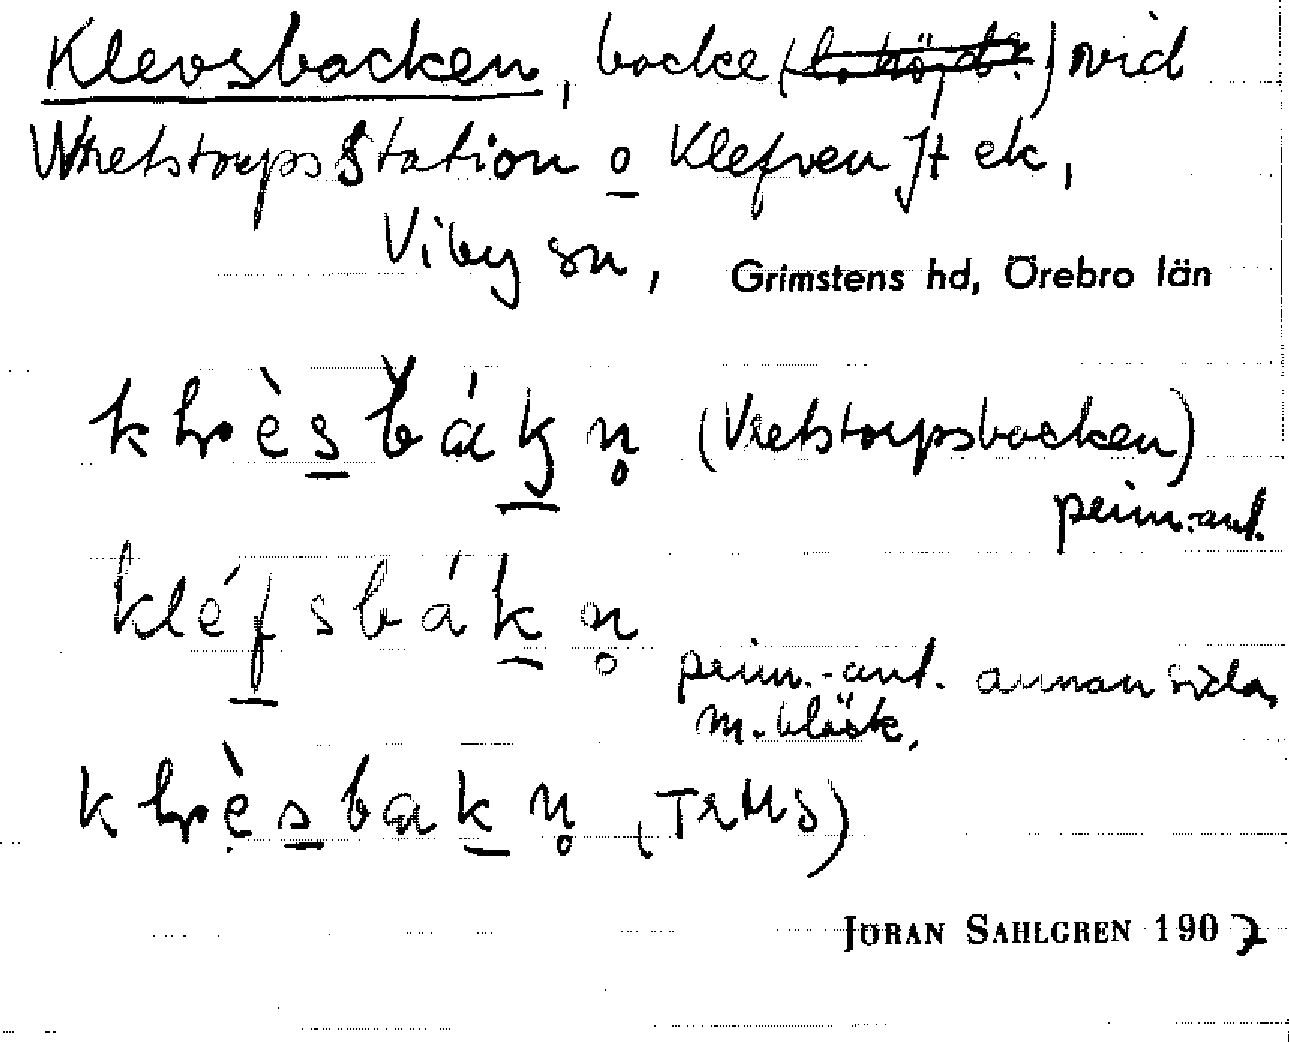 Klevsbacken, backe () vid
Vretstorps Station o Klefven Jt ek,
Viby sn, Grimstens hd, Örebro län
(Vretstorpsbacken)
prim.-ant.
kléfsbákn̥
prim.-ant. annan sida,
m. bläck.
JÖRAN SAHLGREN 1907